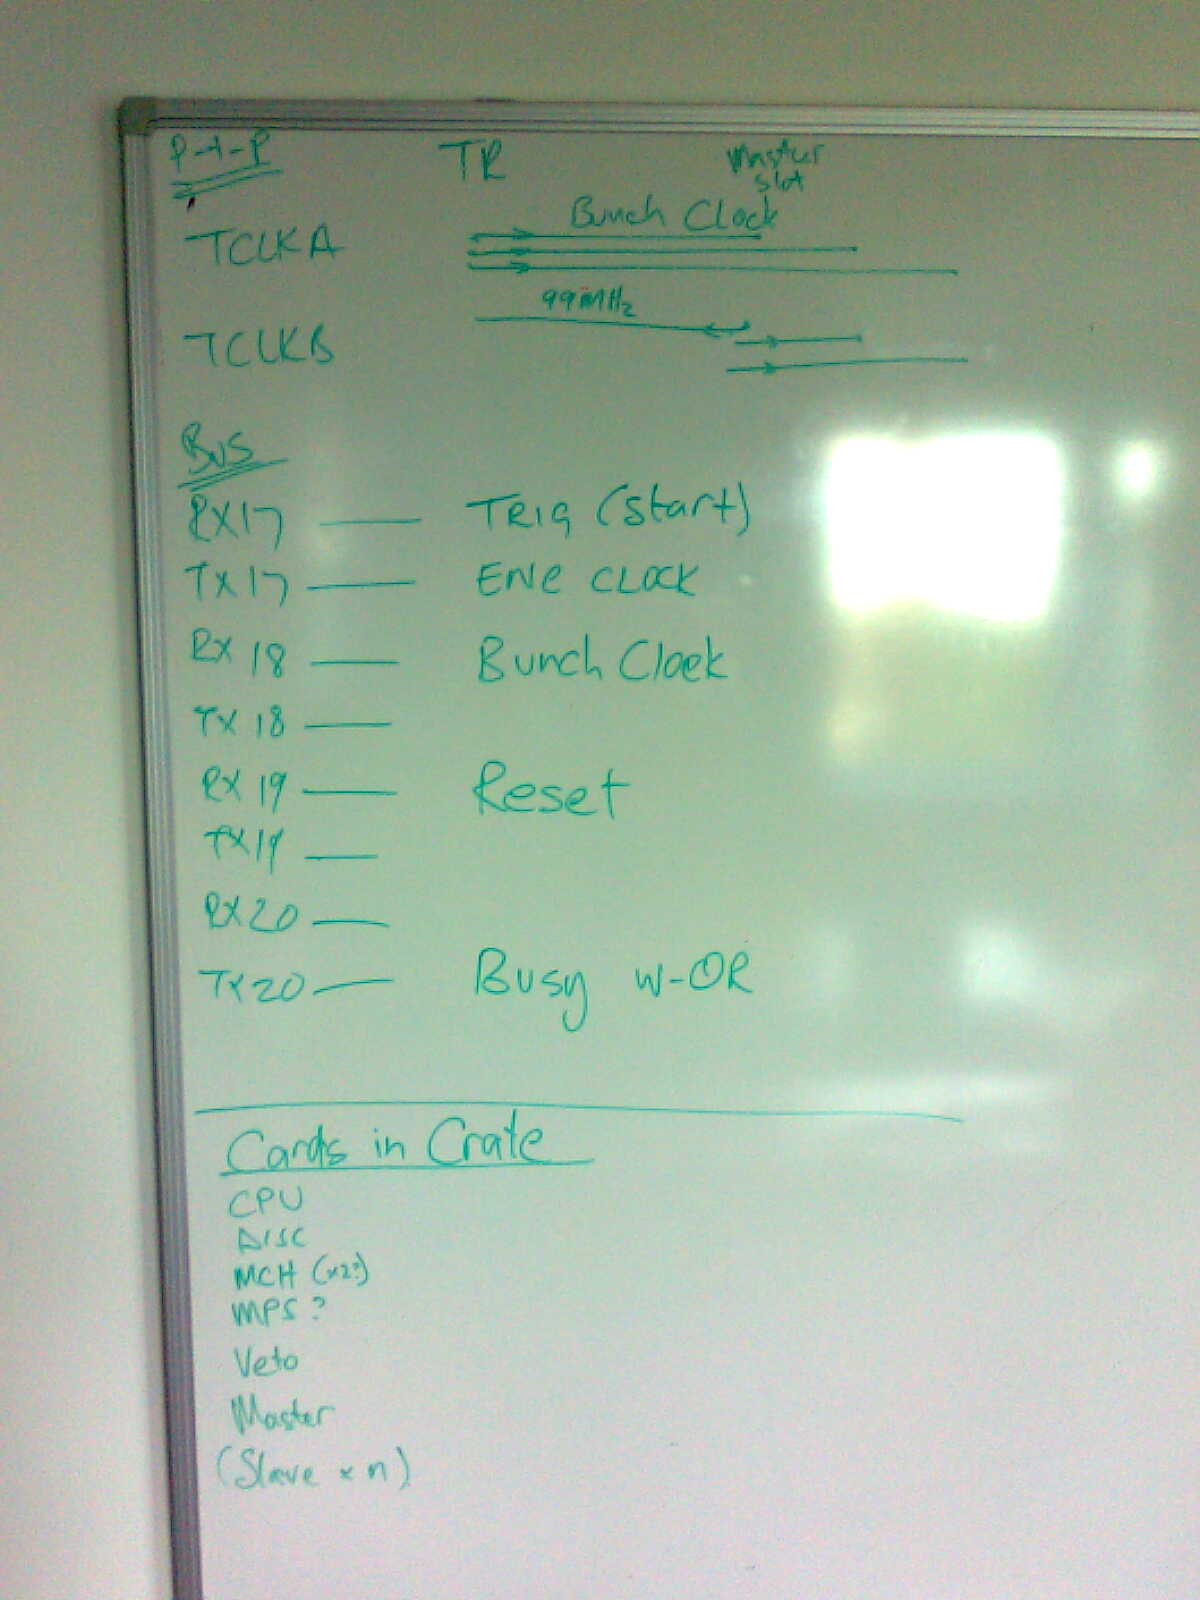 P-t-P TR Master
slot
Bunch Clock
TCLKA
99MHz
TCLKB
Bus
RX17 — TRIG (Start)
TX17 — ENE CLOCK
RX 18 — Bunch Clock
TX 18 —
RX 19 — Reset
TX19 —
RX20 —
TX20 — Busy W-OR
Cards in Crate
CPU
DISC
MCH (x2?)
MPS?
Veto
Master
(Slave x n)